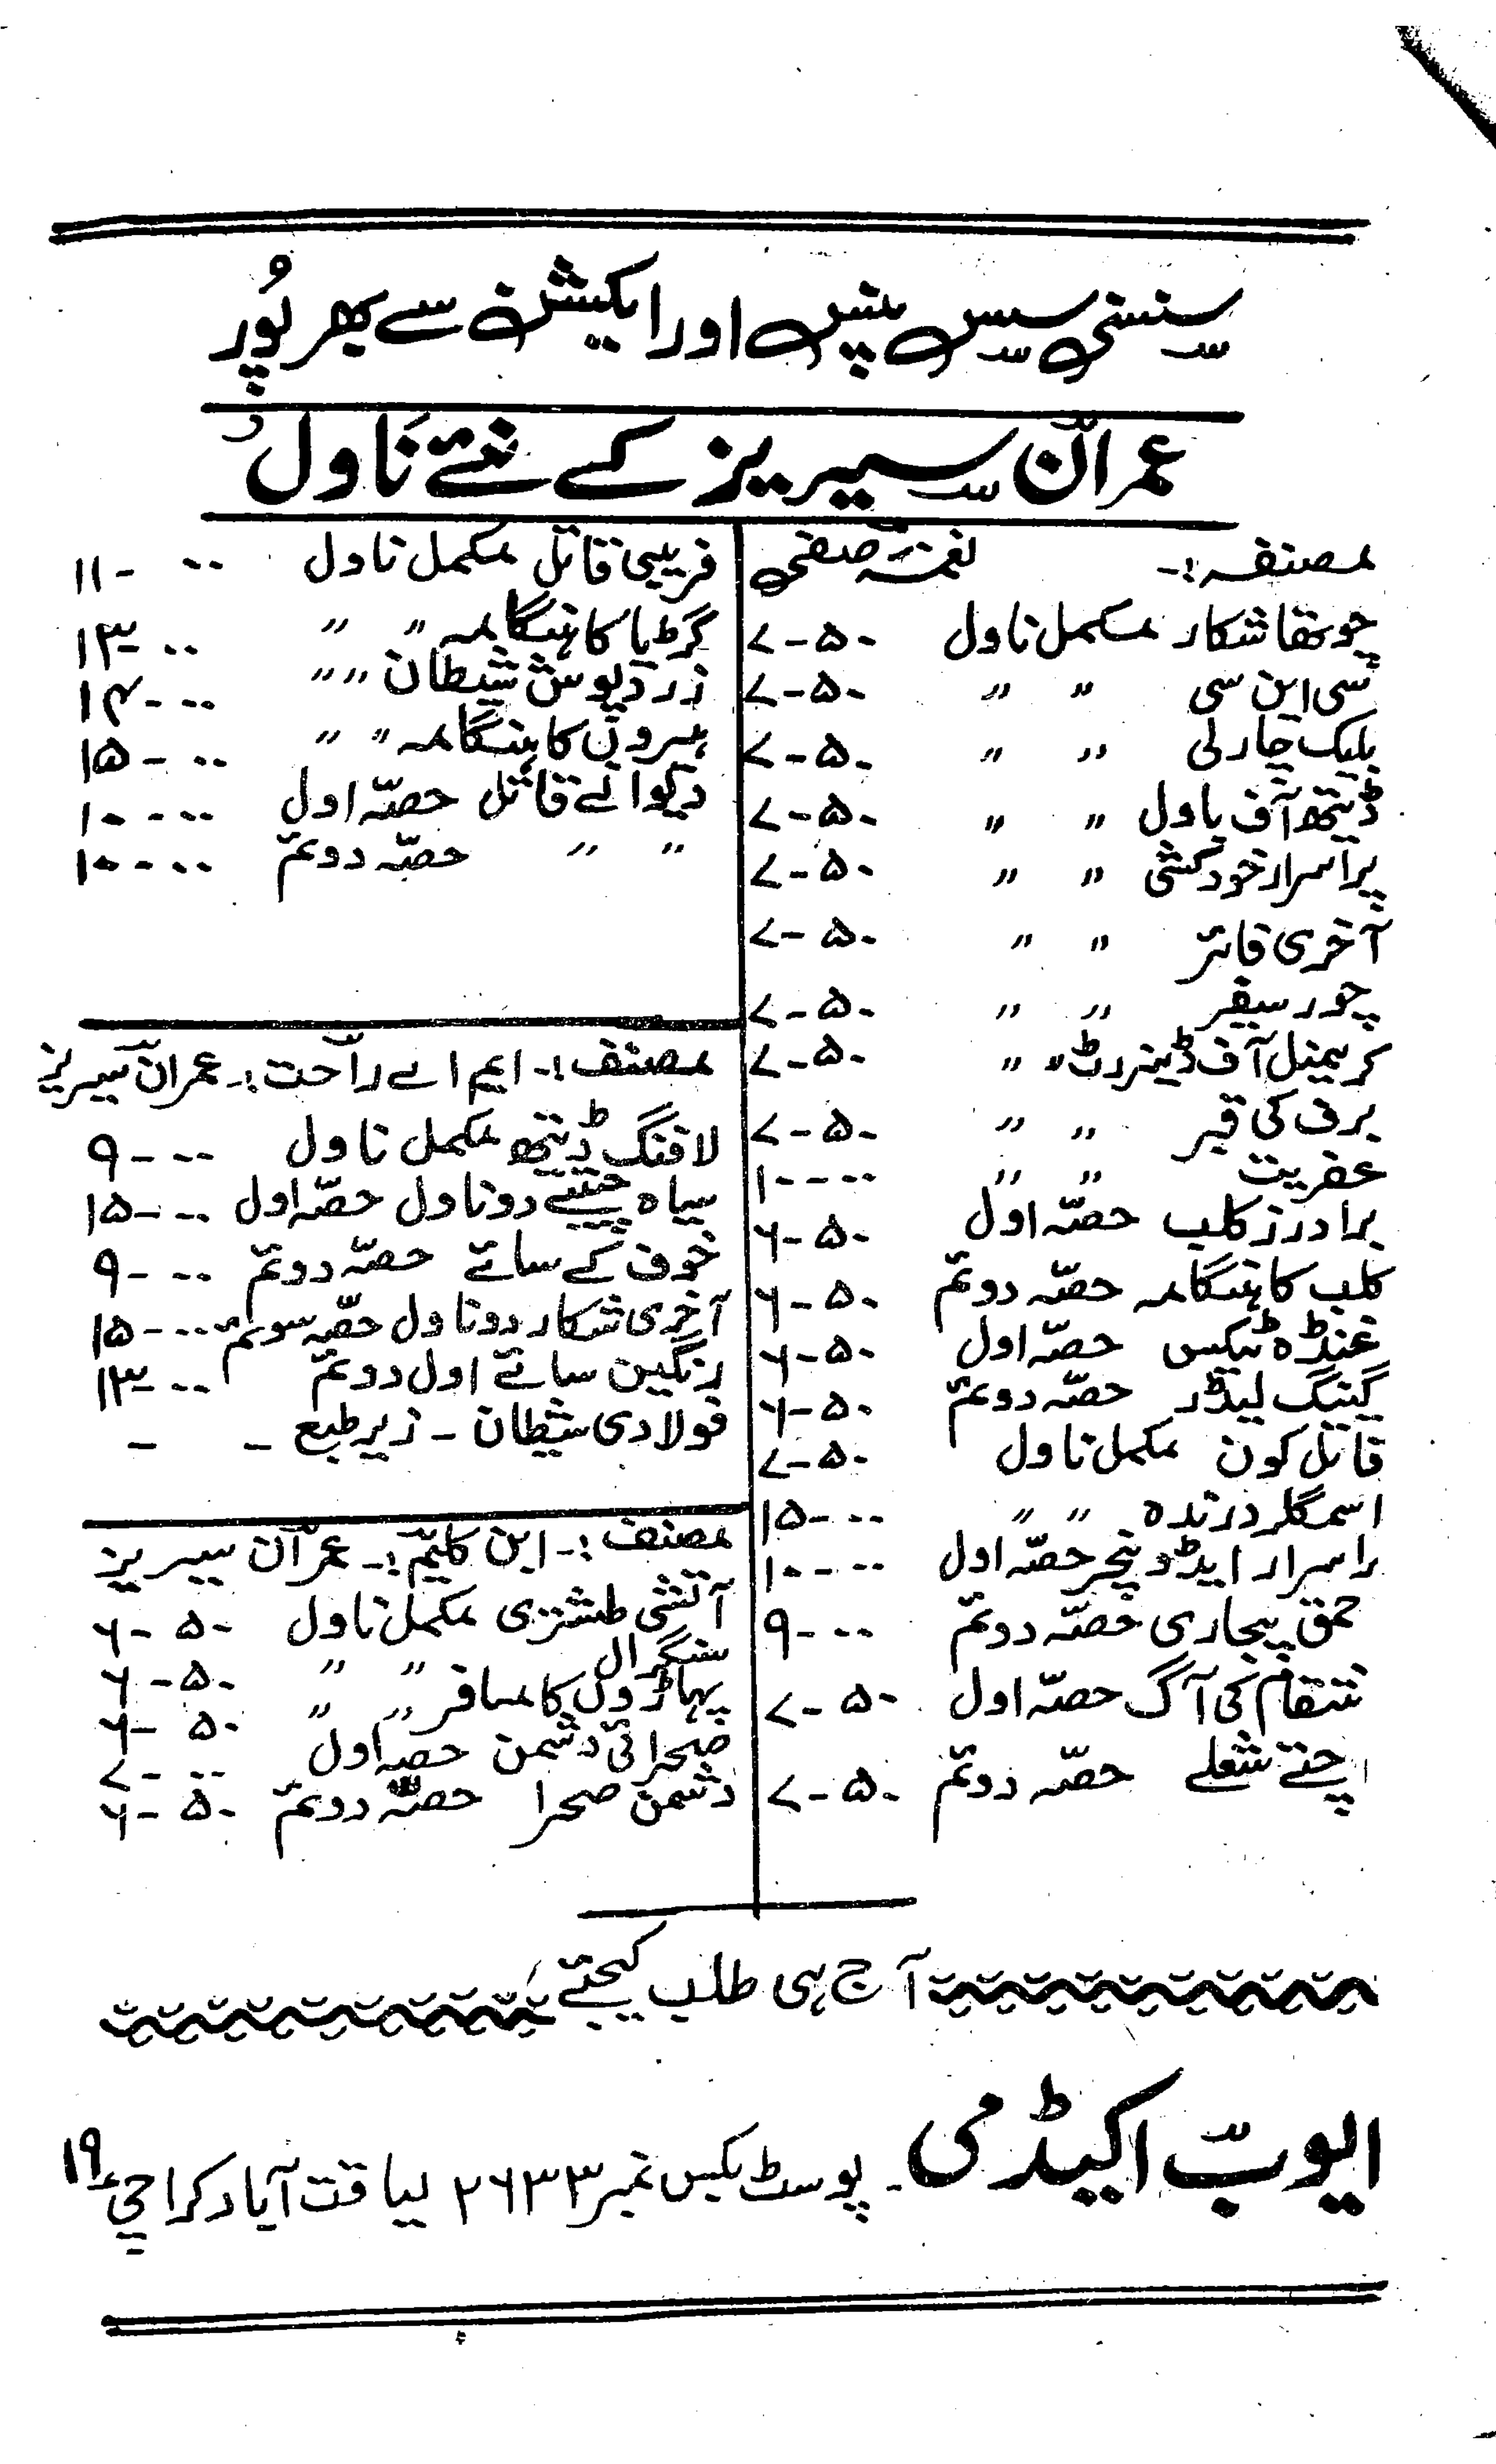 سنسنی سپنس اور ایکشن سے بھر پُور
عمران سیریز کے نئے ناول
مصنفہ :- نغمہ صفی
چوتھا شکار مکمل ناول ۵۰-۷
سی این سی " " ۵۰-۷
بلیک چارلی " " ۵۰-۷
ڈیتھ آف پاول " " ۵۰-۷
پراسرار خودکشی " " ۵۰-۷
آخری فائر " " ۵۰-۷
چور سیفر " " ۵۰-۷
کریمنل آف ڈینزرٹ " " ۵۰-۷
برف کی قبر " " ۵۰-۷
عفریت " " ۰۰-۱۰
برادرز کلب حصّہ اول ۵۰-۶
کلب کا ہنگامہ حصّہ دوئم ۵۰-۶
غنڈہ ٹیکس حصّہ اول ۵۰-۶
گینگ لیڈر حصّہ دوئم ۵۰-۶
قاتل کون مکمل ناول ۵۰-۷
اسمگلر درندہ " " ۰۰-۱۵
راسرار ایڈونچر حصّہ اول ۰۰-۱۰
حمق پجاری حصّہ دوئم ۰۰-۹
نتقام کی آگ حصّہ اول ۵۰-۷
حصّہ دوئم ۵۰-۷
فریبی قاتل مکمل ناول ۰۰-۱۱
گڑیا کا ہنگامہ " " ۰۰-۱۳
زرد پوش شیطان " " ۰۰-۱۴
ہیروں کا ہنگامہ " " ۰۰-۱۵
دیوانے قاتل حصّہ اول ۰۰-۱۰
" " حصّہ دوئم ۰۰-۱۰
مصنف :- ایم اے راحت :- عمران سیریز
لافنگ ڈیتھ مکمل ناول ۰۰-۹
سیاہ چیتے دو ناول حصّہ اول ۰۰-۱۵
خوف کے سائے حصّہ دوئم ۰۰-۹
آخری شکار دو ناول حصّہ سوئم ۰۰-۱۵
رنگین سائے اول دوئم ۰۰-۱۳
فولادی شیطان - زیر طبع - -
مصنف :- ابن کلیم :- عمران سیریز
آتشی طشتری مکمل ناول ۵۰-۶
سنگرال " " ۵۰-۶
پہاڑوں کا مسافر " " ۵۰-۶
صحرائی دشمن حصہ اول ۰۰-۷
دشمن صحرا حصّہ دوئم ۵۰-۶
آج ہی طلب کیجئے
ایوب اکیڈمی - پوسٹ بکس نمبر ۲۶۳۳ لیاقت آباد کراچی ۱۹